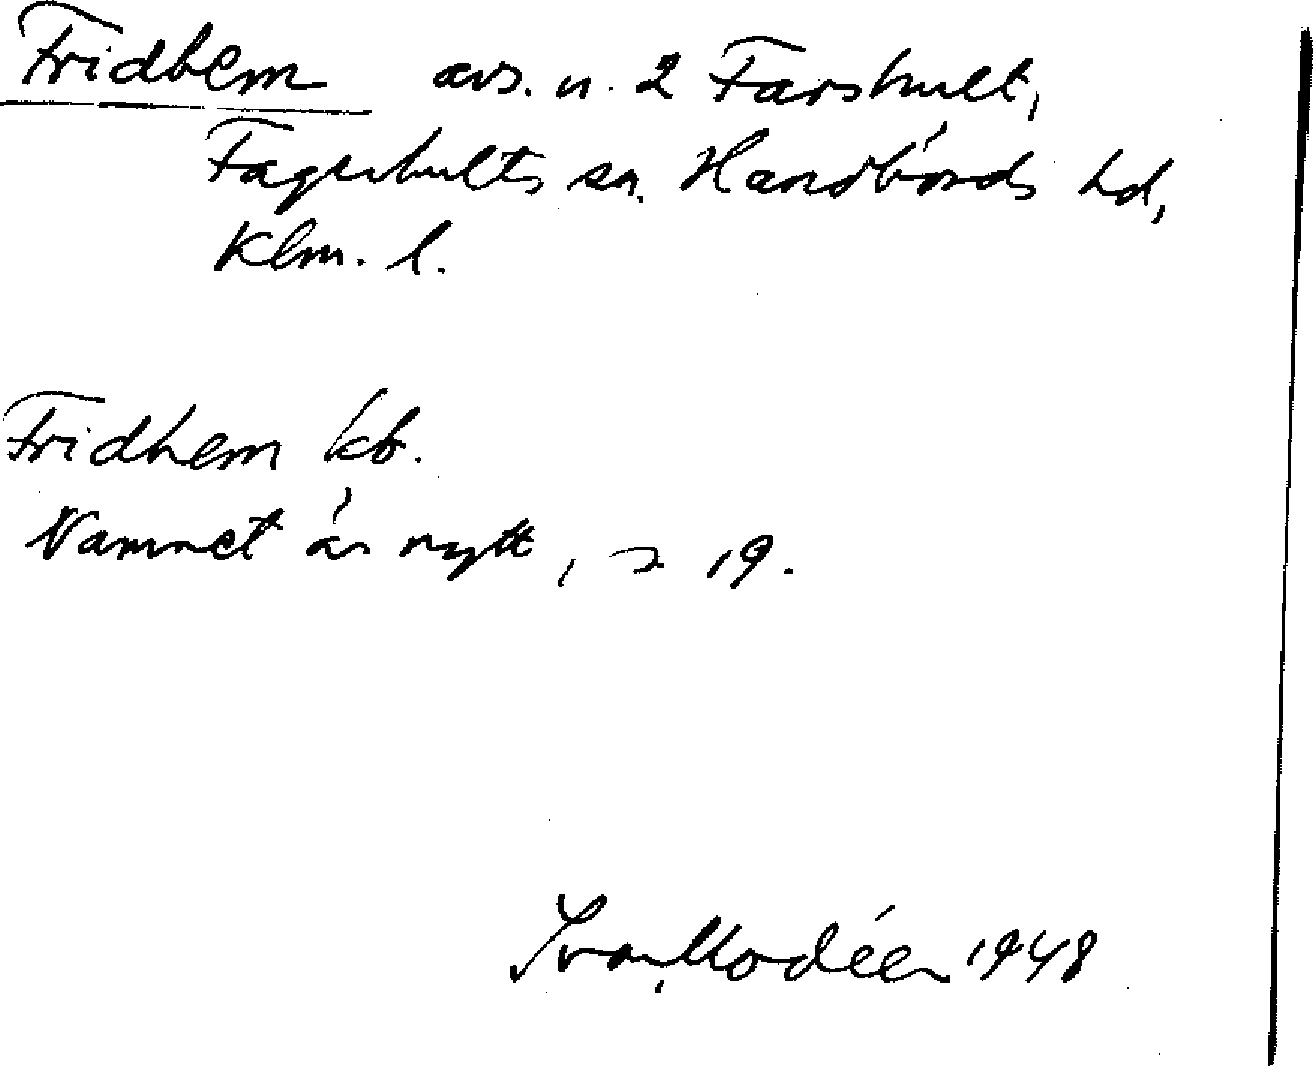 Fridhem avs. n. 2 Farshult,
Fagerhults sn, Handbörds hd,
Klm. l.
Fridhem kb.
Namnet är nytt, 19.
Ivar Modéer 1948